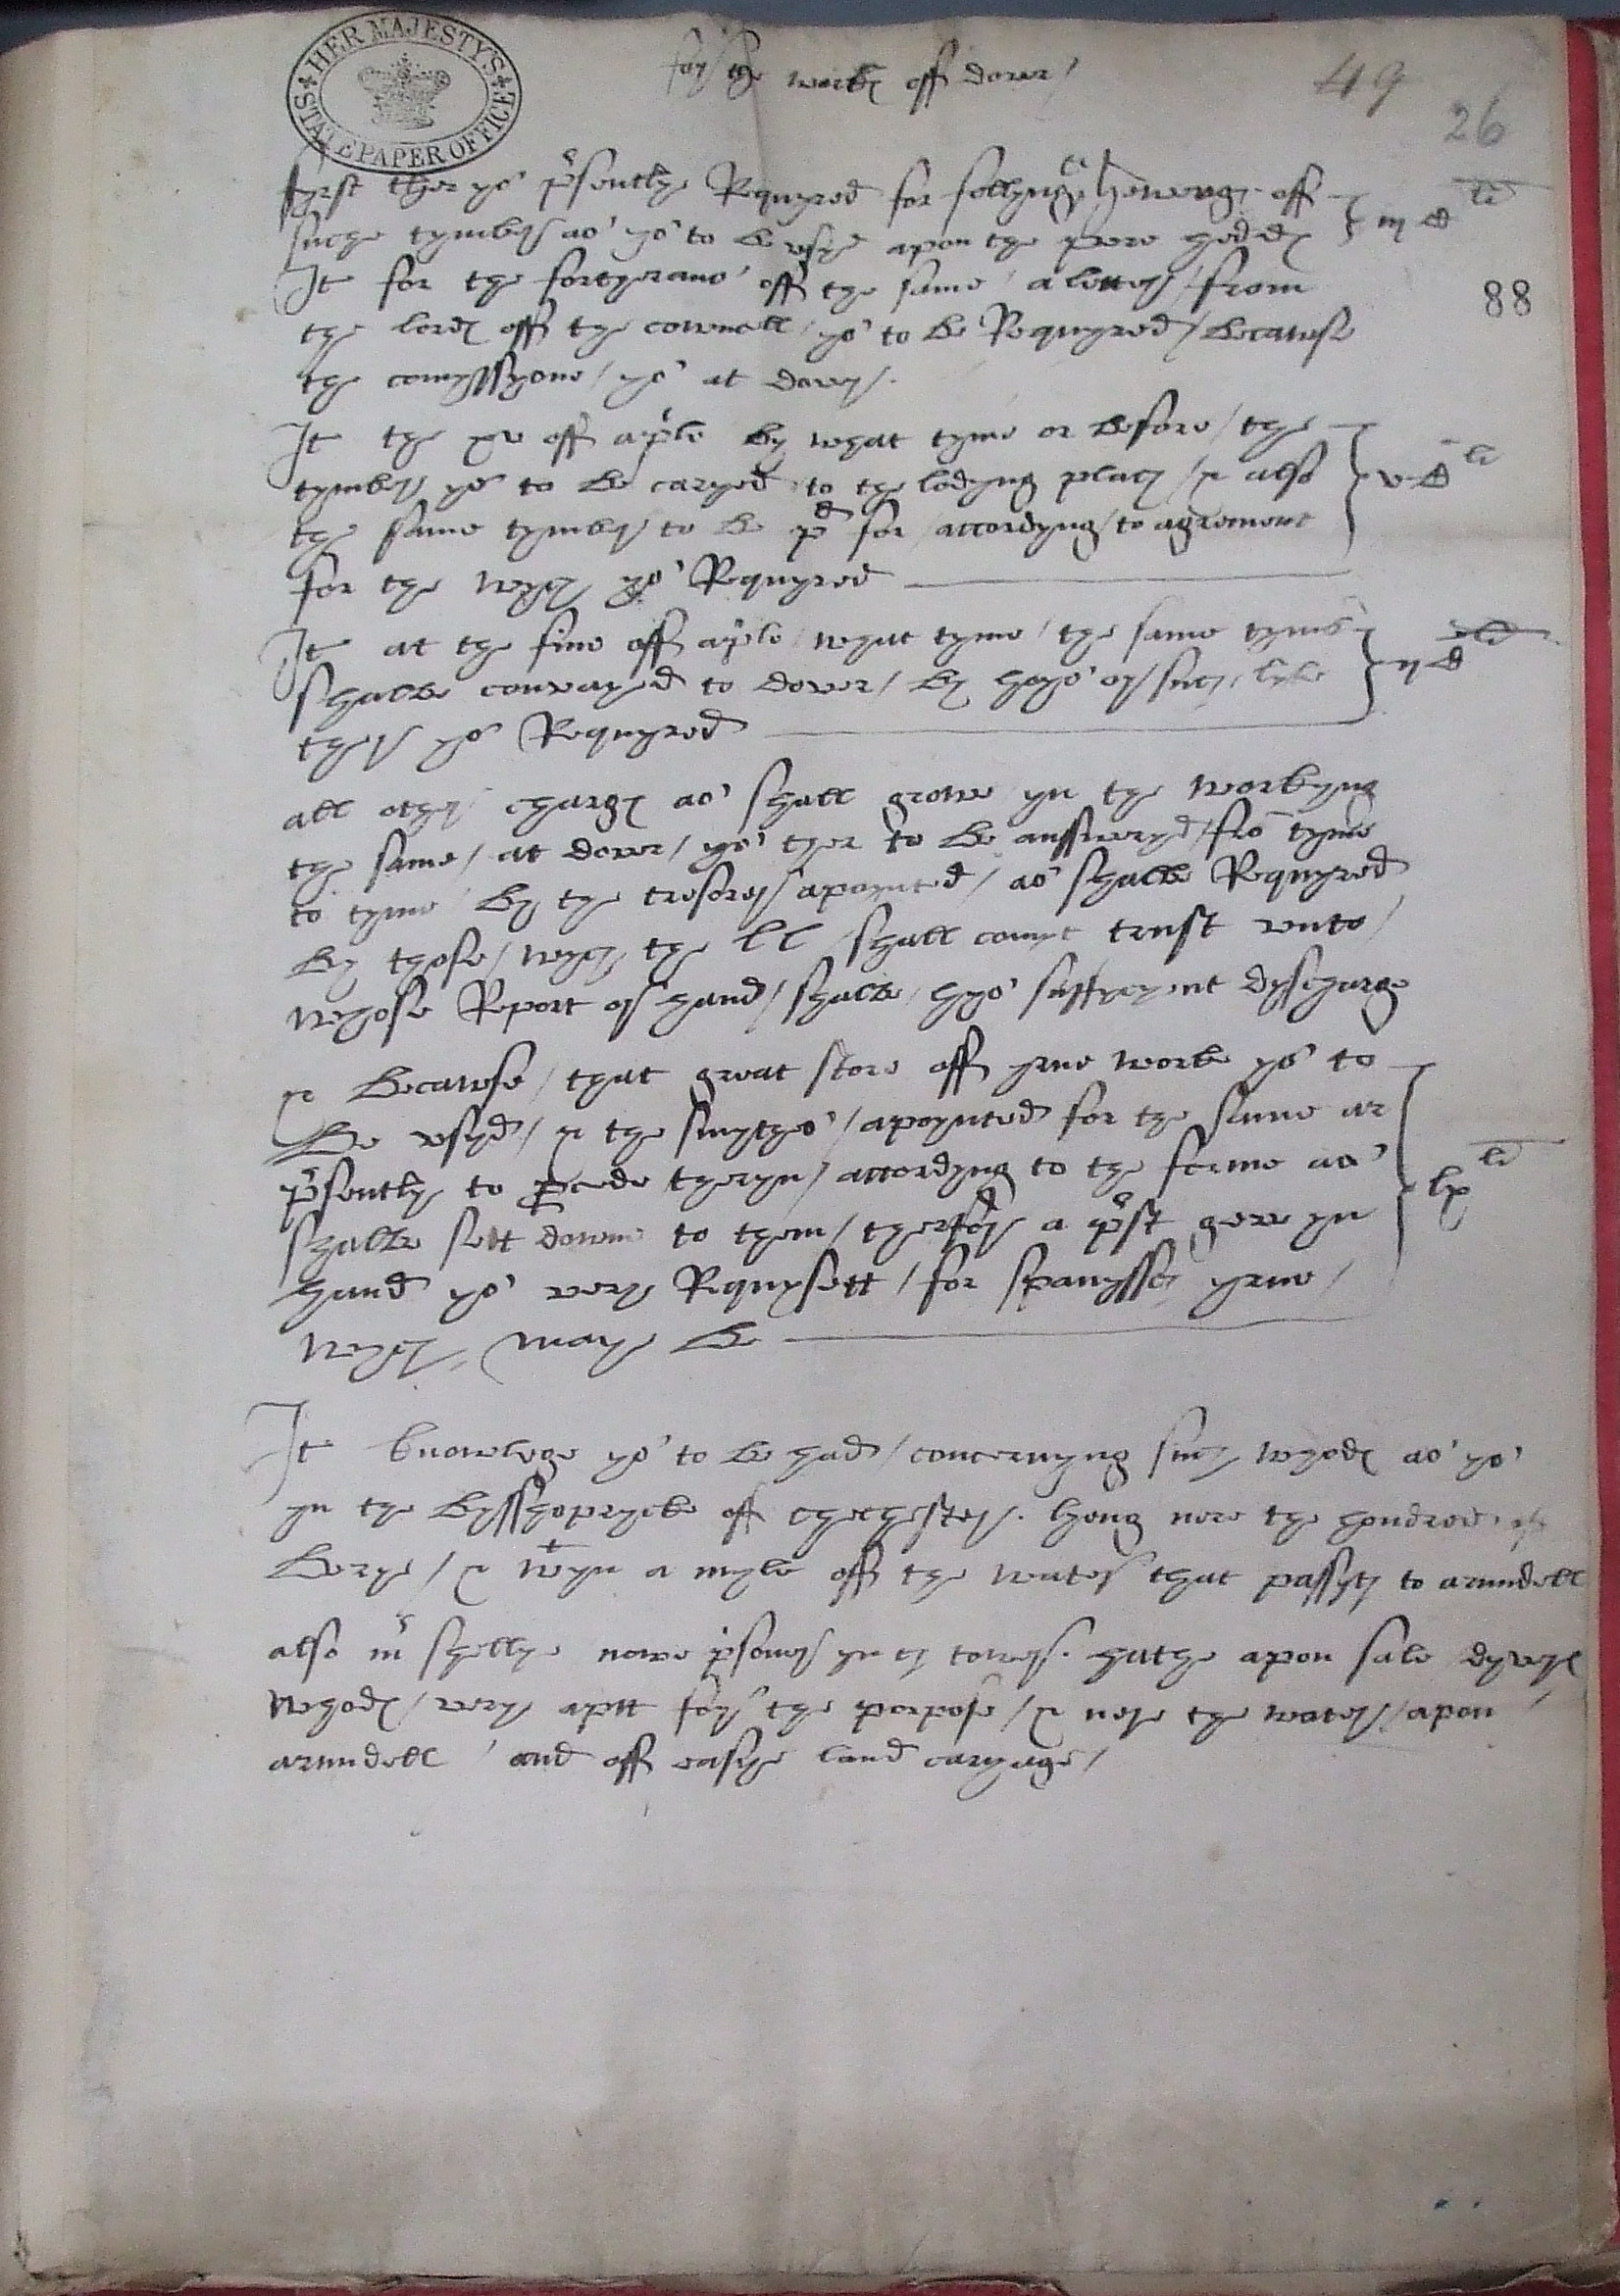 HER MAJESTY'S STATE PAPER OFFICE
for the workes off dover /
49
26
88
fyrst ther ys p'sentlye Requyred for fellynge & heweng off
suche tymber as ys to be usyd apon the pere heddes iij C li
It for the fortherans off the same a letter / from
the lordes off the counsell / ys to be Requyred / because
the comyssyons / ys at dover.
It the xv off aprle by what tyme or before / the
tymber ys to be caryed to the lodyng place / & also v C li
the same tymber to be pd for / accordyng to agrement
for the wych ys Requyred
It at the fine off aprle / what tyme / the same tymb'
shalbe convayed to dover / by hoys or such lyke ij C li
ther ys Requyred
all other charges as shall growe yn the workyng
the same / at dover / ys ther to be answeryd / fro tyme
to tyme by the tresorer apoynted / as shalbe Requyred
by those / wych the ll shall comyt trust unto /
whose Report or hand / shalbe / hys suffycyent dyscharge
& because / that great store off yrne worke ys to
be usyd / & the smythes / apoynted for the same ar
p'sently to procede theryn / accordyng to the forme as
shalbe sett downe to them / therfor a prst geve yn lx li
hand ys very Requysett / for spanyssh yrne /
wych / maye be
It knowlege ys to be had / concernyng such whodes as ys
yn the bysshopryck off chechester. lyeng nere the hondred off
Berye / & wtyn a myle off the water that passyth to arundell
also mr shellye nowe prsoner yn the tower. hathe apon sale dyvers
whodes / very aptt for the porpose / & nere the water / apon
arundell / and off easye land caryage /